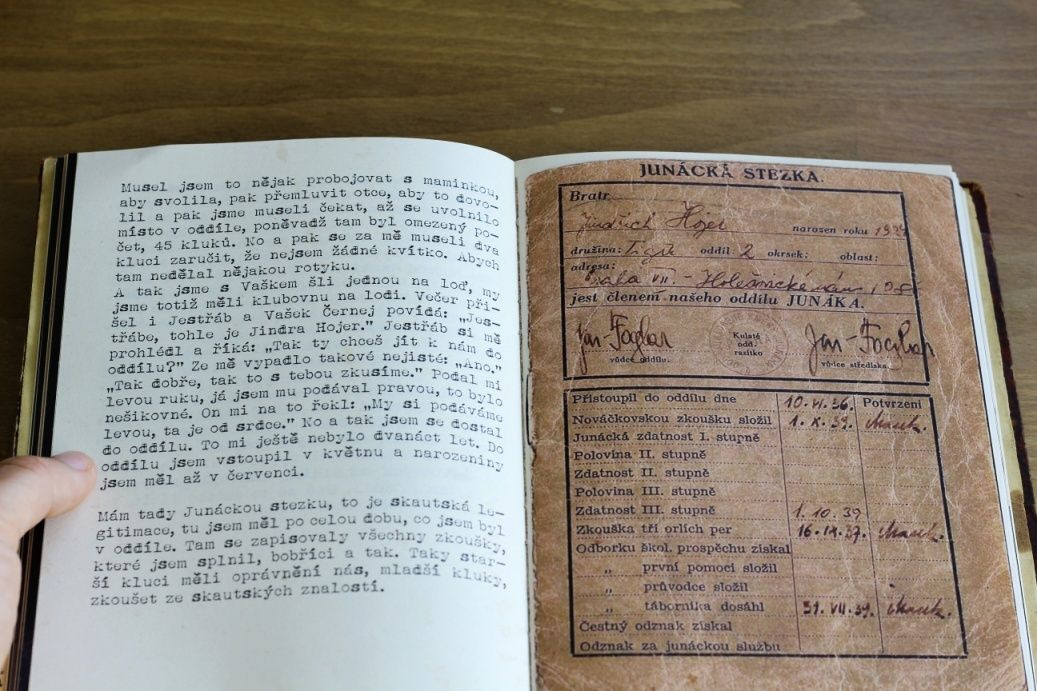 Musel jsem to nějak probojovat s maminkou,
aby svolila, pak přemluvit otce, aby to dovo-
lil a pak jsme museli čekat, až se uvolnilo
místo v oddíle, poněvadž tam byl omezený po-
čet, 45 kluků. No a pak se za mě museli dva
kluci zaručit, že nejsem žádné kvítko. Abych
tam nedělal nějakou rotyku.
A tak jsme s Vaškem šli jednou na loď, my
jsme totiž měli klubovnu na lodi. Večer při-
šel i Jestřáb a Vašek Černej povídá: „Jes-
třábe, tohle je Jindra Hojer." Jestřáb si mě
prohlédl a říká: „Tak ty chceš jít k nám do
oddílu?" Ze mě vypadlo takové nejisté: „Ano."
„Tak dobře, tak to s tebou zkusíme." Podal mi
levou ruku, já jsem mu podával pravou, to bylo
nešikovné. On mi na to řekl: „My si podáváme
levou, ta je od srdce." No a tak jsem se dostal
do oddílu. To mi ještě nebylo dvanáct let. Do
oddílu jsem vstoupil v květnu a narozeniny
jsem měl až v červenci.
Mám tady Junáckou stezku, to je skautská le-
gitimace, tu jsem měl po celou dobu, co jsem byl
v oddíle. Tam se zapisovaly všechny zkoušky,
které jsem splnil, bobříci a tak. Taky star-
ší kluci měli oprávnění nás, mladší kluky,
zkoušet ze skautských znalostí.
JUNÁCKÁ STEZKA.
Bratr
Jindřich Hojer narozen roku
družina: Tygři oddíl 2 okrsek: oblast:
adresa:
VII. - Holešovické
jest členem našeho oddílu JUNÁKA.
Jan Foglar Kulaté odd. razítko Jan Foglar
vůdce oddílu. vůdce střediska.
Přistoupil do oddílu dne 10. VI. 36. Potvrzení
Nováčkovskou zkoušku složil 1. X. 37.
Junácká zdatnost I. stupně
Polovina II. stupně
Zdatnost II. stupně
Polovina III. stupně
Zdatnost III. stupně 1. 10. 39.
Zkouška tří orlích per 16. IX. 37.
Odborku škol. prospěchu získal
„ první pomoci složil
„ průvodce složil
„ táborníka dosáhl 31. VII. 39.
Čestný odznak získal
Odznak za junáckou službu